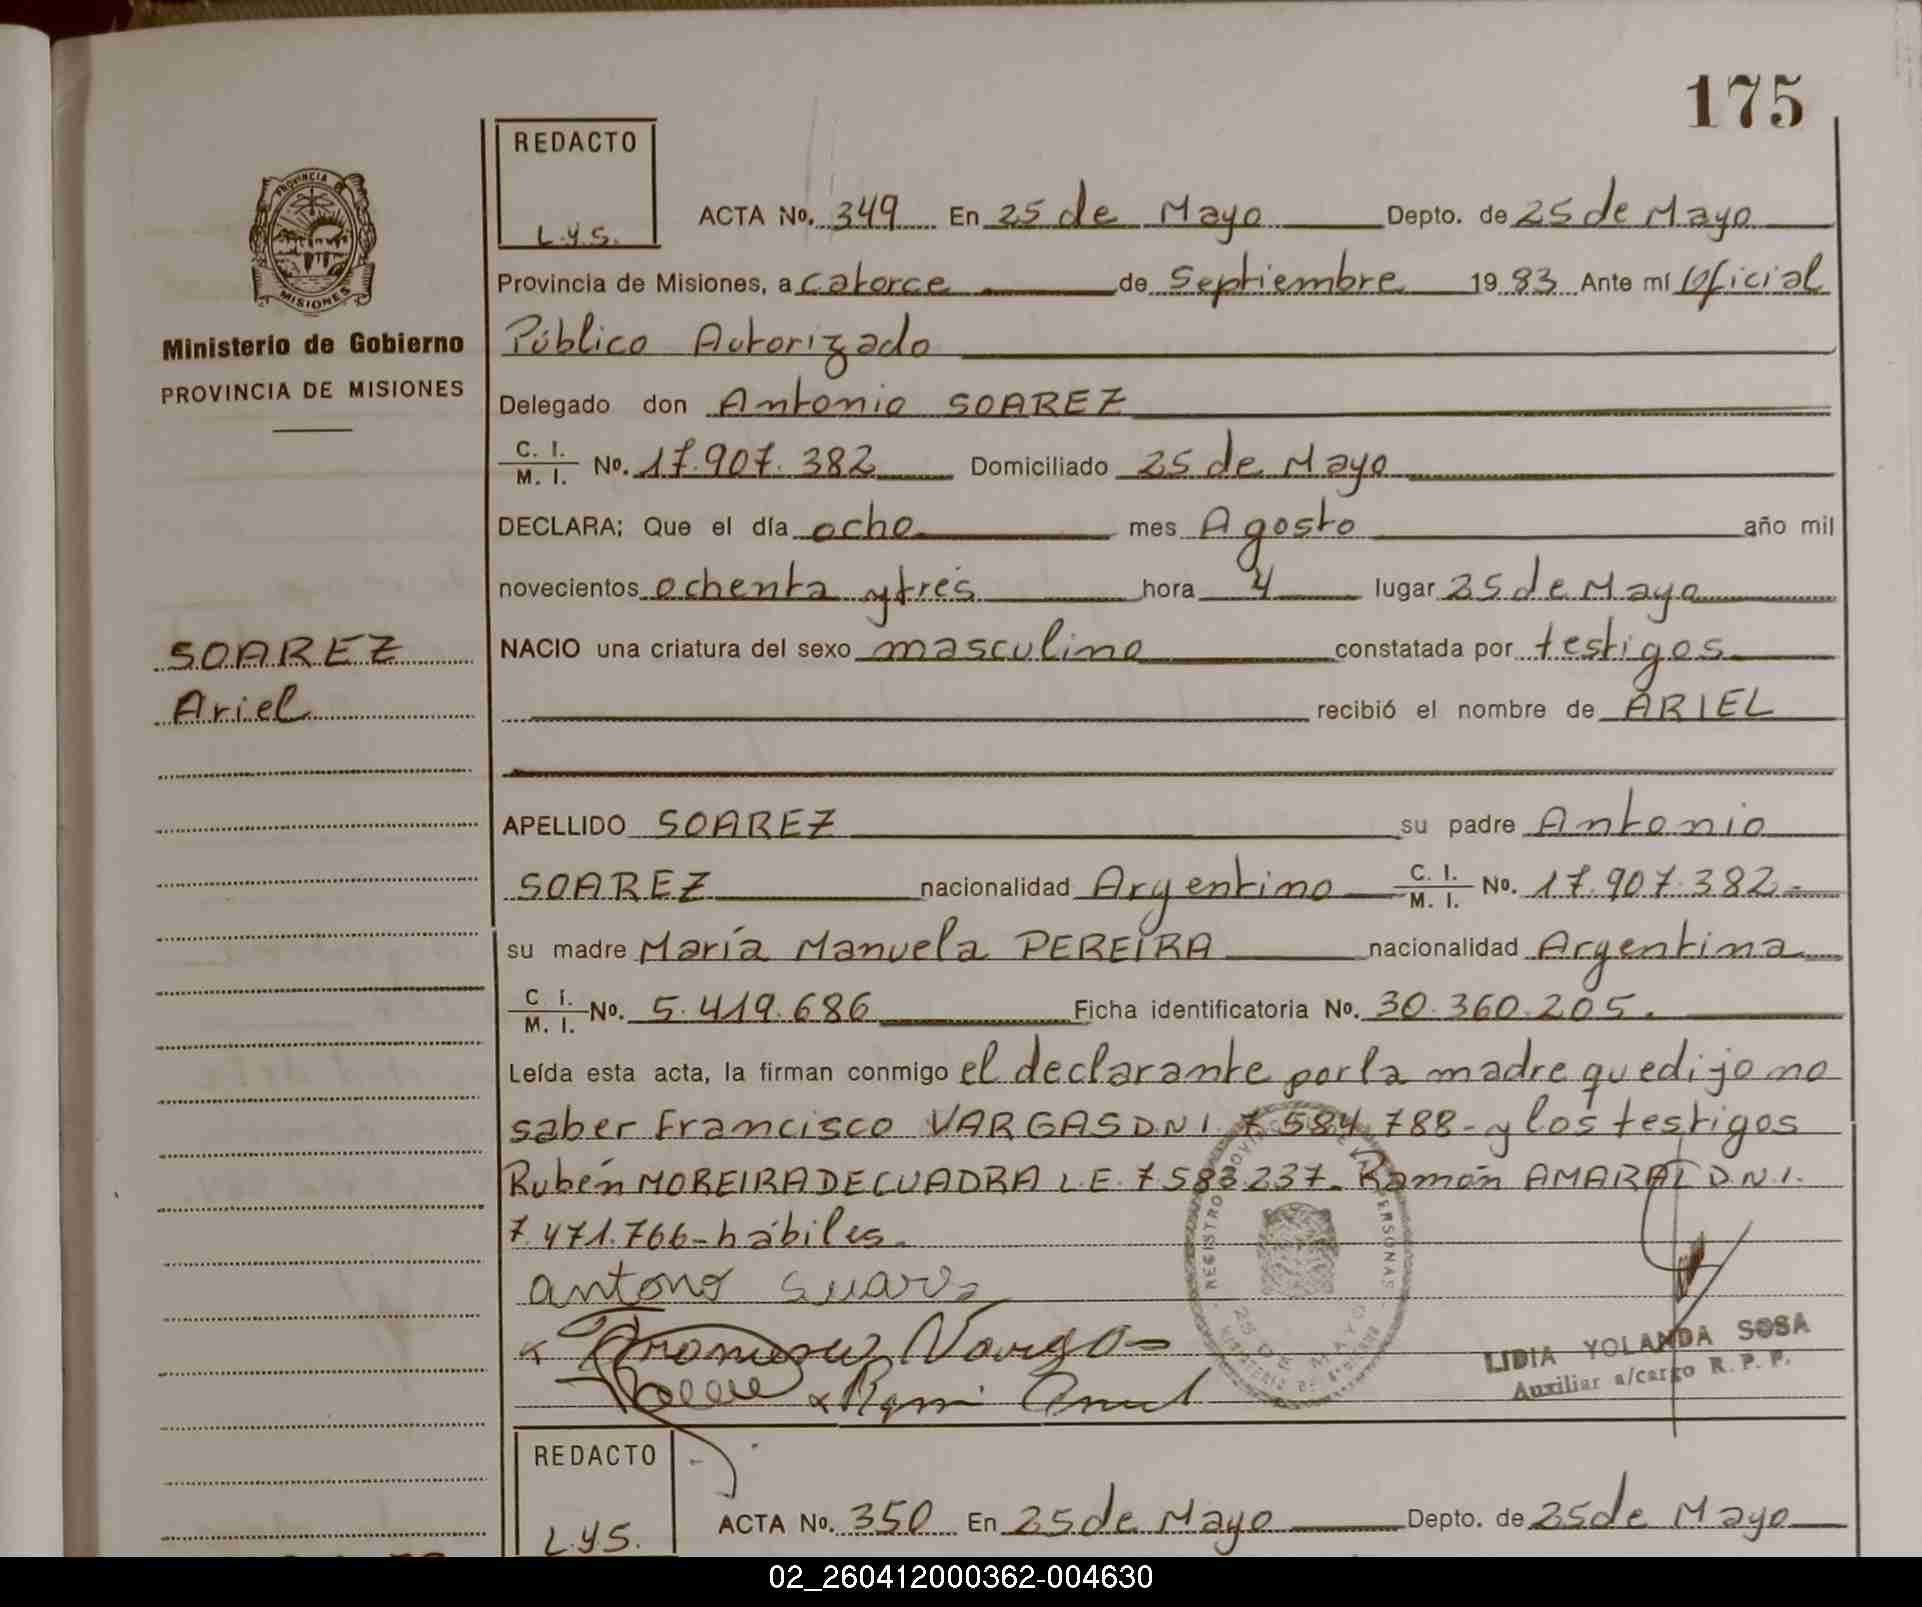 175
REDACTO
L.Y.S.
PROVINCIA DE
MISIONES
Ministerio de Gobierno
PROVINCIA DE MISIONES
SOAREZ
Ariel
ACTA No. 349 En 25 de Mayo Depto. de 25 de Mayo
Provincia de Misiones, a catorce de Septiembre 1983 Ante mí Oficial
Público Autorizado
Delegado don Antonio SOAREZ
C. I. / M. I. No. 17.907.382 Domiciliado 25 de Mayo
DECLARA; Que el día ocho mes Agosto año mil
novecientos ochenta y tres hora 4 lugar 25 de Mayo
NACIO una criatura del sexo masculino constatada por testigos
recibió el nombre de ARIEL
APELLIDO SOAREZ su padre Antonio
SOAREZ nacionalidad Argentino C. I. / M. I. No. 17.907.382-
su madre María Manuela PEREIRA nacionalidad Argentina
C I. / M. I. No. 5.419.686 Ficha identificatoria No. 30.360.205.
Leída esta acta, la firman conmigo el declarante por la madre que dijo no
saber Francisco VARGAS DNI 7 584 788- y los testigos
Rubén MOREIRA DE CUADRA L.E. 7 583.237- Ramón AMARAL D.N.I.
7.471.766- hábiles.
antono
LIDIA YOLANDA SOSA
Auxiliar a/cargo R. P. P.
REDACTO
L.Y.S.
ACTA No. 350 En 25 de Mayo Depto. de 25 de Mayo
02_260412000362-004630